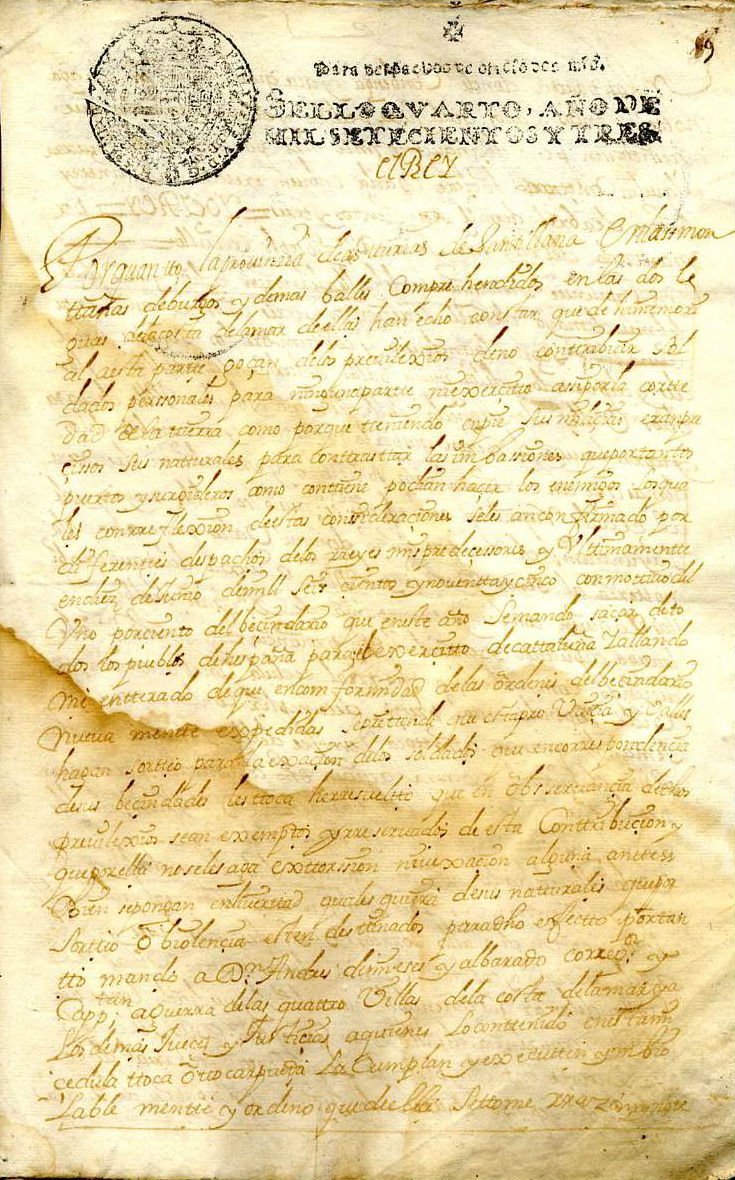 89
Para despachos de oficio dos mrs.
SELLO QVARTO, AÑO DE
MIL SETECIENTOS Y TRES
El REY
Por quantto la provincia de asturias de Santtillana En las mon
ttañas de burgos y demas balles Comprehendidos en las dos le
guas de la costa de la mar de ellas han echo constar que de himemori
al a esta partte goçan de los previlexios de no conttribuir sol
dados perssonales para ninguna partte ni exercitto assi por la cortte
dad de la tierra como porque ttieniendo en pie sus miliçias eran pre
cissos sus natturales para conttrasttar las imbasiones que por tanttos
puerttos y surgideros como conttiene podian hacer los enemigos los qua
les con rreflexion de esttas consideraciones se les an confirmado por
diferenttes despachos de los rreyes mis predecessores y Ultimamentte
en diez de junio de mill seis cienttos y novintta y cinco con mottivo del
Uno por ciento del becindario que en este año se mando sacar de to
dos los pueblos de hespaña para el exercitto de cattaluña Y allando
me entterado de que en comformidad de las ordenes del becindario
nueva mentte expedidas se pretende que esta provincia y Valles
hagan sortteo para la exaçion de los soldados que en correspondençia
de sus becindades les ttoca he rresuelto que en observançia de dhos
previlexios sean exemptos y rreservados de esta Conttribucion y
que por ella no se les aga exttorssion ni vexacion alguna antes
Bien se pongan en livertad quales quiera de sus natturales que por
Sortteo o biolencia estten desttinados para dho efectto por tan
tto mando a Dn Andres de mieses y albarado correor y
Cappn a guerra de las quattro Villas de la costa de la mar y a
Los demas Jueces y Justticias a quienes Lo conttenido en esta mi
cedula ttoca o ttocar pueda La Cumplan y executten ymbio
lable mentte y ordeno que de ella se ttome rraçon